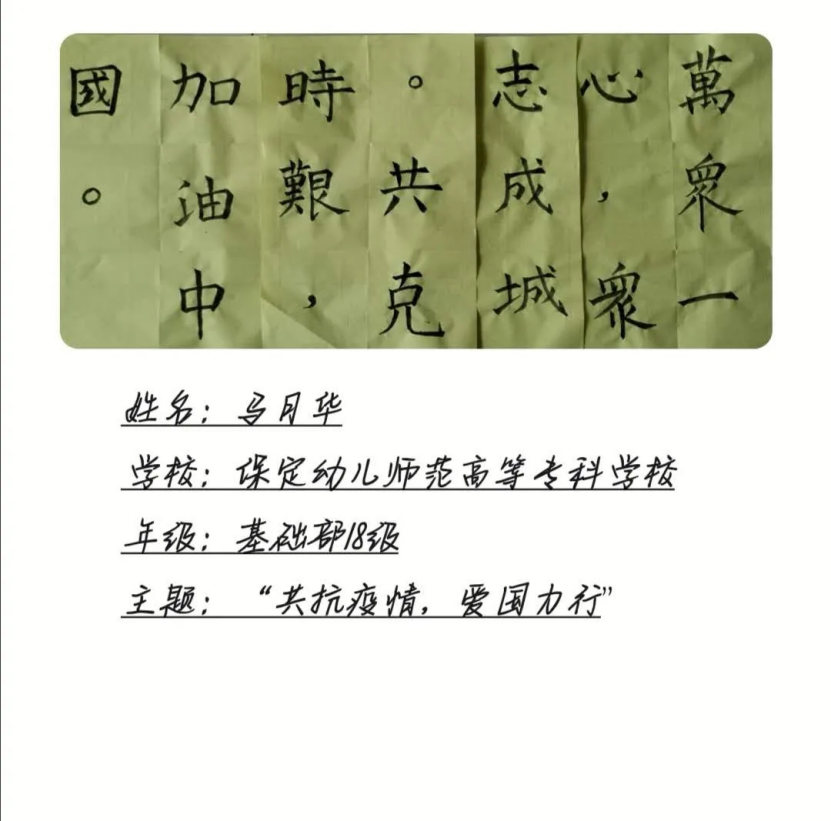 萬眾一
心，眾
志成城
。共克
時艱，
加油中
國。
姓名：马月华
学校：保定幼儿师范高等专科学校
年级：基础部18级
主题：“共抗疫情，爱国力行”